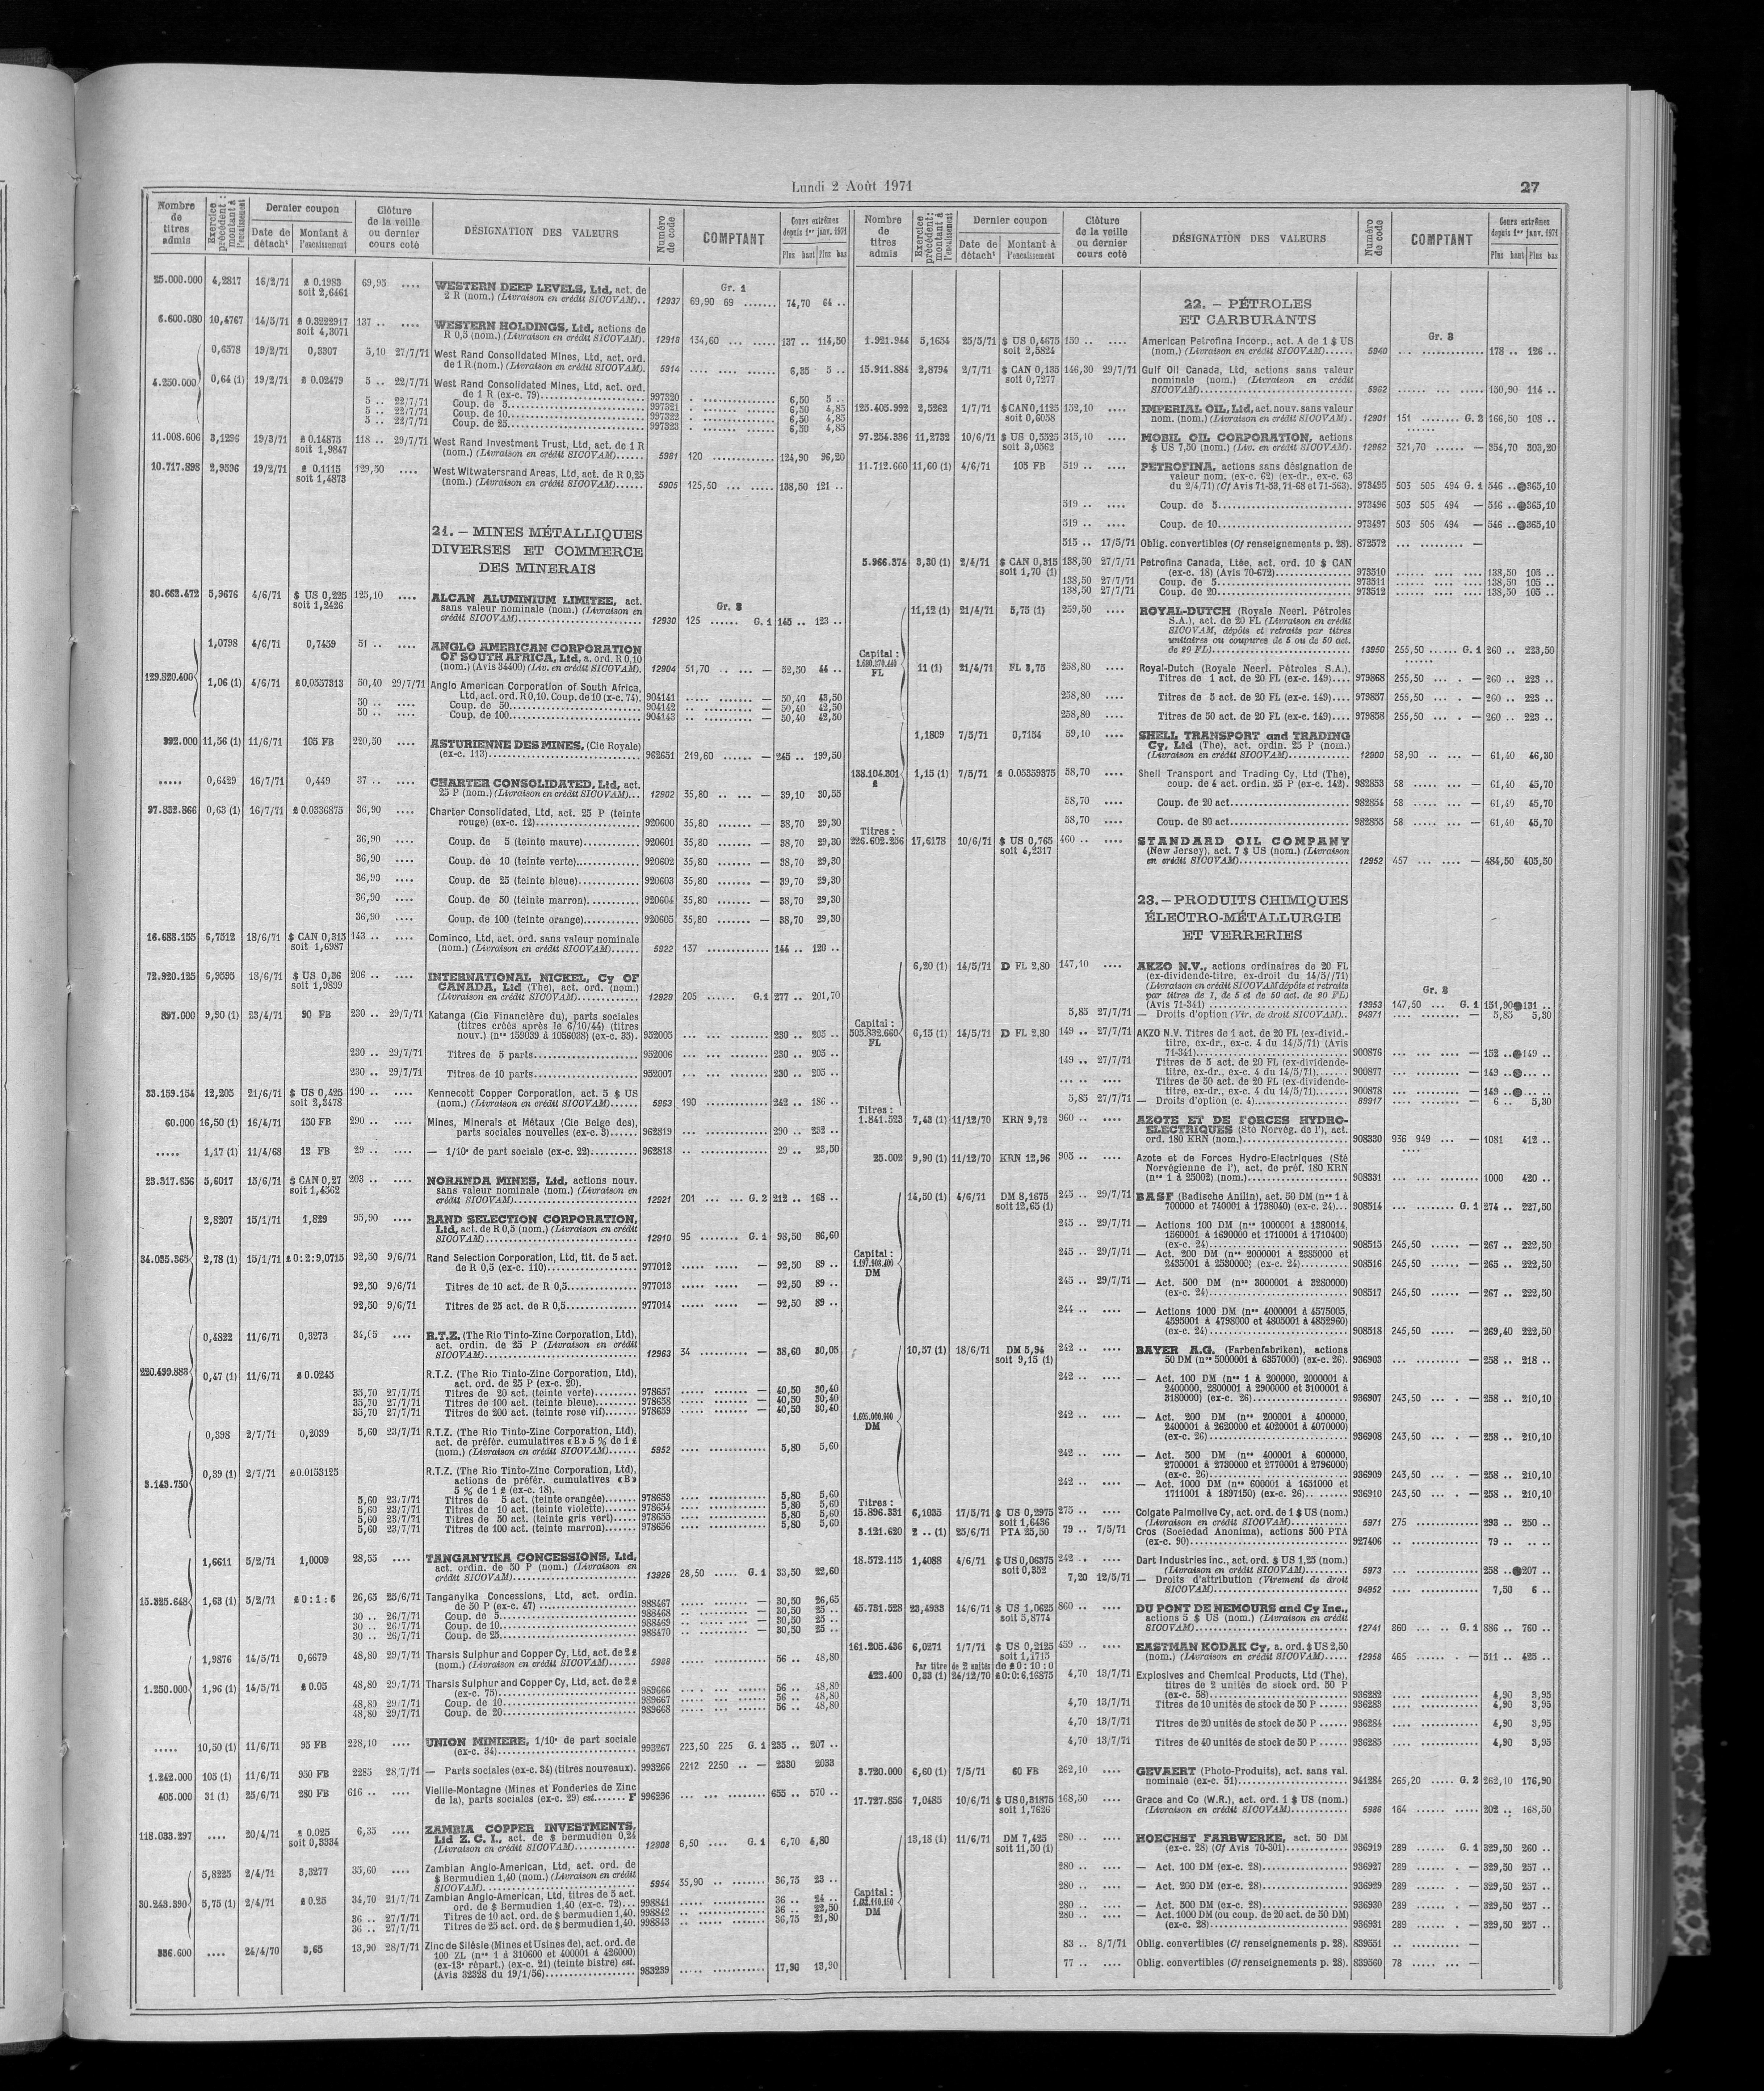 Lundi 2 Août 1971
27
Nombre de titres admis
Exercice précédent : montant à l'encaissement
Dernier coupon
Date de détacht
Montant à l'encaissement
Clôture de la veille ou dernier cours coté
DÉSIGNATION DES VALEURS
Numéro de code
COMPTANT
Cours extrêmes depuis 1er janv. 1971
Plus haut Plus bas
Gr. 1
25.000.000 4,2817 16/2/71 £ 0.1983 69,95 .... WESTERN DEEP LEVELS, Ltd, act. de
soit 2,6461 2 R (nom.) (Livraison en crédit SICOVAM).. 12937 69,90 69 ....... 74,70 64 ..
6.600.080 10,4767 14/5/71 £ 0.3222917 137 .. .... WESTERN HOLDINGS, Ltd, actions de
soit 4,3071 R 0,5 (nom.) (Livraison en crédit SICOVAM). 12918 134,60 ... ..... 137 .. 114,50
0,6578 19/2/71 0,3307 5,10 27/7/71 West Rand Consolidated Mines, Ltd, act. ord.
de 1 R (nom.) (Livraison en crédit SICOVAM). 5914 .... ..... ..... 6,35 5 ..
4.250.000 0,64 (1) 19/2/71 £ 0.02479 5 .. 22/7/71 West Rand Consolidated Mines, Ltd, act. ord.
de 1 R (ex-c. 79) 997320 6,50 5 ..
5 .. 22/7/71 Coup. de 5 997321 6,50 4,85
5 .. 22/7/71 Coup. de 10 997322 6,50 4,85
5 .. 22/7/71 Coup. de 25 997323 6,50 4,85
11.008.606 3,1296 19/3/71 £ 0.14875 118 .. 29/7/71 West Rand Investment Trust, Ltd, act. de 1 R
soit 1,9847 (nom.) (Livraison en crédit SICOVAM)...... 5981 120 124,90 96,20
10.717.898 2,9596 19/2/71 £ 0.1115 129,50 .... West Witwatersrand Areas, Ltd, act. de R 0,25
soit 1,4873 (nom.) (Livraison en crédit SICOVAM)...... 5905 125,50 ... ..... 138,50 121 ..
21. – MINES MÉTALLIQUES
DIVERSES ET COMMERCE
DES MINERAIS
Gr. 3
30.662.472 5,3676 4/6/71 $ US 0,225 125,10 .... ALCAN ALUMINIUM LIMITEE, act.
soit 1,2426 sans valeur nominale (nom.) (Livraison en
crédit SICOVAM) 12930 125 ...... G. 1 145 .. 123 ..
1,0798 4/6/71 0,7459 51 .. .... ANGLO AMERICAN CORPORATION
OF SOUTH AFRICA, Ltd, a. ord. R 0,10
(nom.) (Avis 34400) (Liv. en crédit SICOVAM). 12904 51,70 .. ... — 52,50 44 ..
129.520.400 1,06 (1) 4/6/71 £0,0557313 50,40 29/7/71 Anglo American Corporation of South Africa,
Ltd, act. ord. R 0,10. Coup. de 10 (x-c. 74). 904141 — 50,40 43,50
50 .. .... Coup. de 50 904142 — 50,40 42,50
50 .. .... Coup. de 100 904143 — 50,40 42,50
992.000 11,56 (1) 11/6/71 105 FB 220,50 .... ASTURIENNE DES MINES, (Cie Royale)
(ex-c. 113) 962651 219,60 ...... — 245 .. 199,50
..... 0,6429 16/7/71 0,449 37 .. .... CHARTER CONSOLIDATED, Ltd, act.
25 P (nom.) (Livraison en crédit SICOVAM)... 12902 35,80 .. ... — 39,10 30,55
97.832.866 0,63 (1) 16/7/71 £ 0.0336875 36,90 .... Charter Consolidated, Ltd, act. 25 P (teinte
rouge) (ex-c. 12) 920600 35,80 ....... — 38,70 29,30
36,90 .... Coup. de 5 (teinte mauve) 920601 35,80 ....... — 38,70 29,30
36,90 .... Coup. de 10 (teinte verte) 920602 35,80 ....... — 38,70 29,30
36,90 .... Coup. de 25 (teinte bleue) 920603 35,80 ....... — 39,70 29,30
36,90 .... Coup. de 50 (teinte marron) 920604 35,80 ....... — 38,70 29,30
36,90 .... Coup. de 100 (teinte orange) 920605 35,80 ....... — 38,70 29,30
16.688.155 6,7512 18/6/71 $ CAN 0,315 143 .. .... Cominco, Ltd, act. ord. sans valeur nominale
soit 1,6987 (nom.) (Livraison en crédit SICOVAM)...... 5922 137 144 .. 120 ..
72.920.125 6,9595 18/6/71 $ US 0,36 206 .. .... INTERNATIONAL NICKEL, Cy OF
soit 1,9899 CANADA, Ltd (The), act. ord. (nom.)
(Livraison en crédit SICOVAM) 12929 205 ...... G.1 277 .. 201,70
897.000 9,90 (1) 23/4/71 90 FB 230 .. 29/7/71 Katanga (Cie Financière du), parts sociales
(titres créés après le 6/10/44) (titres
nouv.) (nos 159039 à 1056038) (ex-c. 35). 952005 230 .. 205 ..
230 .. 29/7/71 Titres de 5 parts 952006 230 .. 205 ..
230 .. 29/7/71 Titres de 10 parts 952007 230 .. 205 ..
33.159.154 12,205 21/6/71 $ US 0,425 190 .. .... Kennecott Copper Corporation, act. 5 $ US
soit 2,3478 (nom.) (Livraison en crédit SICOVAM)...... 5963 190 242 .. 186 ..
60.000 16,50 (1) 16/4/71 150 FB 290 .. .... Mines, Minerais et Métaux (Cie Belge des),
parts sociales nouvelles (ex-c. 3) 962819 290 .. 232 ..
..... 1,17 (1) 11/4/68 12 FB 29 .. .... — 1/10e de part sociale (ex-c. 22) 962818 29 .. 23,50
23.317.656 5,6017 15/6/71 $ CAN 0,27 203 .. .... NORANDA MINES, Ltd, actions nouv.
soit 1,4562 sans valeur nominale (nom.) (Livraison en
crédit SICOVAM) 12921 201 ... ... G. 2 212 .. 168 ..
2,8207 15/1/71 1,829 95,90 .... RAND SELECTION CORPORATION,
Ltd, act. de R 0,5 (nom.) (Livraison en crédit
SICOVAM) 12910 95 ........ G. 1 98,50 86,60
34.035.365 2,78 (1) 15/1/71 £0:2:9,0715 92,50 9/6/71 Rand Selection Corporation, Ltd, tit. de 5 act.
de R 0,5 (ex-c. 110) 977012 — 92,50 89 ..
92,50 9/6/71 Titres de 10 act. de R 0,5 977013 — 92,50 89 ..
92,50 9/6/71 Titres de 25 act. de R 0,5 977014 — 92,50 89 ..
0,4822 11/6/71 0,3273 34,05 .... R.T.Z. (The Rio Tinto-Zinc Corporation, Ltd),
act. ordin. de 25 P (Livraison en crédit
SICOVAM) 12963 34 .......... — 38,60 30,05
220.499.883 0,47 (1) 11/6/71 £ 0.0245 R.T.Z. (The Rio Tinto-Zinc Corporation, Ltd),
act. ord. de 25 P (ex-c. 20).
35,70 27/7/71 Titres de 20 act. (teinte verte) 978657 — 40,50 30,40
35,70 27/7/71 Titres de 100 act. (teinte bleue) 978658 — 40,50 30,40
35,70 27/7/71 Titres de 200 act. (teinte rose vif) 978659 — 40,50 30,40
0,398 2/7/71 0,2039 5,60 23/7/71 R.T.Z. (The Rio Tinto-Zinc Corporation, Ltd),
act. de préfér. cumulatives «B» 5 % de 1 £
(nom.) (Livraison en crédit SICOVAM)...... 5952 5,80 5,60
3.143.750 0,39 (1) 2/7/71 £0.0153125 R.T.Z. (The Rio Tinto-Zinc Corporation, Ltd),
actions de préfér. cumulatives «B»
5 % de 1 £ (ex-c. 18).
5,60 23/7/71 Titres de 5 act. (teinte orangée) 978653 5,80 5,60
5,60 23/7/71 Titres de 10 act. (teinte violette) 978654 5,80 5,60
5,60 23/7/71 Titres de 50 act. (teinte gris vert) 978655 5,80 5,60
5,60 23/7/71 Titres de 100 act. (teinte marron) 978656 5,80 5,60
1,6611 5/2/71 1,0009 28,55 .... TANGANYIKA CONCESSIONS, Ltd,
act. ordin. de 50 P (nom.) (Livraison en
crédit SICOVAM) 13926 28,50 ..... G. 1 33,50 22,60
15.325.648 1,63 (1) 5/2/71 £ 0:1:6 26,65 25/6/71 Tanganyika Concessions, Ltd, act. ordin.
de 50 P (ex-c. 47) 988467 — 30,50 26,65
30 .. 26/7/71 Coup. de 5 988468 — 30,50 25 ..
30 .. 26/7/71 Coup. de 10 988469 — 30,50 25 ..
30 .. 26/7/71 Coup. de 25 988470 — 30,50 25 ..
1,9876 14/5/71 0,6679 48,80 29/7/71 Tharsis Sulphur and Copper Cy, Ltd, act. de 2 £
(nom.) (Livraison en crédit SICOVAM)...... 5988 56 .. 48,80
1.250.000 1,96 (1) 14/5/71 £ 0.05 48,80 29/7/71 Tharsis Sulphur and Copper Cy, Ltd, act. de 2 £
(ex-c. 75) 989666 56 .. 48,80
48,80 29/7/71 Coup. de 10 989667 56 .. 48,80
48,80 29/7/71 Coup. de 20 989668 56 .. 48,80
..... 10,50 (1) 11/6/71 95 FB 228,10 .... UNION MINIERE, 1/10e de part sociale
(ex-c. 34) 993267 223,50 225 G. 1 235 .. 207 ..
1.242.000 105 (1) 11/6/71 950 FB 2285 28/7/71 — Parts sociales (ex-c. 34) (titres nouveaux). 993266 2212 2250 .. — 2330 2033
405.000 31 (1) 25/6/71 280 FB 616 .. .... Vieille-Montagne (Mines et Fonderies de Zinc
de la), parts sociales (ex-c. 29) est....... F 996236 655 .. 570 ..
118.033.297 .... 20/4/71 £ 0.025 6,35 .... ZAMBIA COPPER INVESTMENTS,
soit 0,3334 Ltd Z. C. I., act. de $ bermudien 0,24
(Livraison en crédit SICOVAM) 12908 6,50 .... G. 1 6,70 4,80
5,8225 2/4/71 3,3277 35,60 .... Zambian Anglo-American, Ltd, act. ord. de
$ Bermudien 1,40 (nom.) (Livraison en crédit
SICOVAM) 5954 35,90 .. ..... 36,75 23 ..
30.243.390 5,75 (1) 2/4/71 £ 0.25 34,70 21/7/71 Zambian Anglo-American, Ltd, titres de 5 act.
ord. de $ Bermudien 1,40 (ex-c. 72)... 998841 36 .. 24 ..
36 .. 27/7/71 Titres de 10 act. ord. de $ bermudien 1,40. 998842 36 .. 22,50
36 .. 27/7/71 Titres de 25 act. ord. de $ bermudien 1,40. 998843 36,75 21,80
336.600 .... 24/4/70 3,65 13,90 28/7/71 Zinc de Silésie (Mines et Usines de), act. ord. de
100 ZL (nos 1 à 310600 et 400001 à 426000)
(ex-13e répart.) (ex-c. 21) (teinte bistre) est.
(Avis 32328 du 19/1/56) 983239 17,90 13,90
Nombre de titres admis
Exercice précédent : montant à l'encaissement
Dernier coupon
Date de détacht
Montant à l'encaissement
Clôture de la veille ou dernier cours coté
DÉSIGNATION DES VALEURS
Numéro de code
COMPTANT
Cours extrêmes depuis 1er janv. 1971
Plus haut Plus bas
22. – PÉTROLES
ET CARBURANTS
Gr. 3
1.921.944 5,1654 25/5/71 $ US 0,4675 150 .. .... American Petrofina Incorp., act. A de 1 $ US
soit 2,5824 (nom.) (Livraison en crédit SICOVAM)...... 5940 178 .. 126 ..
15.911.884 2,8794 2/7/71 $ CAN 0,135 146,30 29/7/71 Gulf Oil Canada, Ltd, actions sans valeur
soit 0,7277 nominale (nom.) (Livraison en crédit
SICOVAM) 5962 150,90 114 ..
125.405.992 2,5262 1/7/71 $ CAN 0,1125 152,10 .... IMPERIAL OIL, Ltd, act. nouv. sans valeur
soit 0,6058 nom. (nom.) (Livraison en crédit SICOVAM). 12901 151 ........ G. 2 166,50 108 ..
97.254.336 11,2732 10/6/71 $ US 0,5525 315,10 .... MOBIL OIL CORPORATION, actions
soit 3,0562 $ US 7,50 (nom.) (Liv. en crédit SICOVAM). 12962 321,70 ...... — 354,70 303,20
11.712.660 11,60 (1) 4/6/71 105 FB 519 .. .... PETROFINA, actions sans désignation de
valeur nom. (ex-c. 62) (ex-dr., ex-c. 63
du 2/4/71) (Cf Avis 71-53, 71-68 et 71-563). 973495 503 505 494 G. 1 546 ..●365,10
519 .. .... Coup. de 5 973496 503 505 494 — 546 ..●365,10
519 .. .... Coup. de 10 973497 503 505 494 — 546 ..●365,10
515 .. 17/5/71 Oblig. convertibles (Cf renseignements p. 28). 872572 ... ......... —
5.966.374 3,30 (1) 2/4/71 $ CAN 0,315 138,50 27/7/71 Petrofina Canada, Ltée, act. ord. 10 $ CAN
soit 1,70 (1) (ex-c. 18) (Avis 70-672) 973510 138,50 105 ..
138,50 27/7/71 Coup. de 5 973511 138,50 105 ..
138,50 27/7/71 Coup. de 20 973512 138,50 105 ..
11,12 (1) 21/4/71 5,75 (1) 259,50 .... ROYAL-DUTCH (Royale Neerl. Pétroles
S.A.), act. de 20 FL (Livraison en crédit
SICOVAM, dépôts et retraits par titres
unitaires ou coupures de 5 ou de 50 act.
de 20 FL) 13950 255,50 ...... G. 1 260 .. 223,50
Capital :
2.680.370.440
FL
11 (1) 21/4/71 FL 3,75 258,80 .... Royal-Dutch (Royale Neerl. Pétroles S.A.).
Titres de 1 act. de 20 FL (ex-c. 149).... 979868 255,50 ... . — 260 .. 223 ..
258,80 .... Titres de 5 act. de 20 FL (ex-c. 149).... 979857 255,50 ... . — 260 .. 223 ..
258,80 .... Titres de 50 act. de 20 FL (ex-c. 149).... 979858 255,50 ... . — 260 .. 223 ..
1,1809 7/5/71 0,7154 59,10 .... SHELL TRANSPORT and TRADING
Cy, Ltd (The), act. ordin. 25 P (nom.)
(Livraison en crédit SICOVAM) 12900 58,90 .. ... — 61,40 46,30
138.104.301 £ 1,15 (1) 7/5/71 £ 0.05359375 58,70 .... Shell Transport and Trading Cy, Ltd (The),
coup. de 4 act. ordin. 25 P (ex-c. 142). 982853 58 ..... ... — 61,40 45,70
58,70 .... Coup. de 20 act 982854 58 ..... ... — 61,40 45,70
58,70 .... Coup. de 80 act 982855 58 ..... ... — 61,40 45,70
Titres :
226.602.256 17,6178 10/6/71 $ US 0,765 460 .. .... STANDARD OIL COMPANY
soit 4,2317 (New Jersey), act. 7 $ US (nom.) (Livraison
en crédit SICOVAM) 12952 457 ... ... — 484,50 405,50
23. – PRODUITS CHIMIQUES
ÉLECTRO-MÉTALLURGIE
ET VERRERIES
Gr. 3
6,20 (1) 14/5/71 D FL 2,80 147,10 .... AKZO N.V., actions ordinaires de 20 FL
(ex-dividende-titre, ex-droit du 14/5/71)
(Livraison en crédit SICOVAM dépôts et retraits
par titres de 1, de 5 et de 50 act. de 20 FL)
(Avis 71-341) 13953 147,50 ... G. 1 151,90●131 ..
5,85 27/7/71 — Droits d'option (Vir. de droit SICOVAM).. 94971 — 5,85 5,30
Capital :
505.832.660
FL
6,15 (1) 14/5/71 D FL 2,80 149 .. 27/7/71 AKZO N.V. Titres de 1 act. de 20 FL (ex-divid.-
titre, ex-dr., ex-c. 4 du 14/5/71) (Avis
71-341) 900876 — 152 ..●149 ..
149 .. 27/7/71 Titres de 5 act. de 20 FL (ex-dividende-
titre, ex-dr., ex-c. 4 du 14/5/71) 900877 — 149 ..●... ..
... .. .... Titres de 50 act. de 20 FL (ex-dividende-
titre, ex-dr., ex-c. 4 du 14/5/71) 900878 — 149 ..●... ..
5,85 27/7/71 — Droits d'option (c. 4) 89917 — 6 .. 5,30
Titres :
1.841.523 7,43 (1) 11/12/70 KRN 9,72 960 .. .... AZOTE ET DE FORCES HYDRO-
ELECTRIQUES (Sté Norvèg. de l'), act.
ord. 180 KRN (nom.) 908330 936 949 ... — 1081 412 ..
25.002 9,90 (1) 11/12/70 KRN 12,96 905 .. .... Azote et de Forces Hydro-Electriques (Sté
Norvégienne de l'), act. de préf. 180 KRN
(nos 1 à 25002) (nom.) 908331 1000 420 ..
14,50 (1) 4/6/71 DM 8,1675 245 .. 29/7/71 BASF (Badische Anilin), act. 50 DM (nos 1 à
soit 12,65 (1) 700000 et 740001 à 1738040) (ex-c. 24)... 908514 G. 1 274 .. 227,50
245 .. 29/7/71 — Actions 100 DM (nos 1000001 à 1380014,
1560001 à 1690000 et 1710001 à 1710400)
(ex-c. 24) 908515 245,50 ..... — 267 .. 222,50
Capital :
1.197.908.400
DM
245 .. 29/7/71 — Act. 200 DM (nos 2000001 à 2385000 et
2435001 à 2530000) (ex-c. 24) 908516 245,50 ..... — 265 .. 222,50
245 .. 29/7/71 — Act. 500 DM (nos 3000001 à 3280000)
(ex-c. 24) 908517 245,50 ..... — 267 .. 222,50
244 .. .... — Actions 1000 DM (nos 4000001 à 4575005,
4595001 à 4798000 et 4805001 à 4852960)
(ex-c. 24) 908518 245,50 ..... — 269,40 222,50
10,57 (1) 18/6/71 DM 5,94 242 .. .... BAYER A.G. (Farbenfabriken), actions
soit 9,15 (1) 50 DM (nos 5000001 à 6357000) (ex-c. 26). 936903 — 258 .. 218 ..
242 .. .... — Act. 100 DM (nos 1 à 200000, 2000001 à
2400000, 2800001 à 2900000 et 3100001 à
3180000) (ex-c. 26) 936907 243,50 ... . — 258 .. 210,10
1.695.000.000
DM
242 .. .... — Act. 200 DM (nos 200001 à 400000,
2400001 à 2620000 et 4020001 à 4070000)
(ex-c. 26) 936908 243,50 ... . — 258 .. 210,10
242 .. .... — Act. 500 DM (nos 400001 à 600000,
2700001 à 2730000 et 2770001 à 2796000)
(ex-c. 26) 936909 243,50 ... . — 258 .. 210,10
242 .. .... — Act. 1000 DM (nos 600001 à 1651000 et
1711001 à 1897150) (ex-c. 26) 936910 243,50 ... . — 258 .. 210,10
Titres :
15.896.331 6,1035 17/5/71 $ US 0,2975 275 .. .... Colgate Palmolive Cy, act. ord. de 1 $ US (nom.)
soit 1,6436 (Livraison en crédit SICOVAM) 5971 275 293 .. 250 ..
3.121.620 2 .. (1) 25/6/71 PTA 25,50 79 .. 7/5/71 Cros (Sociedad Anonima), actions 500 PTA
(ex-c. 90) 927406 79 .. .. ..
18.572.115 1,4088 4/6/71 $ US 0,06375 242 .. .... Dart Industries Inc., act. ord. $ US 1,25 (nom.)
soit 0,352 (Livraison en crédit SICOVAM) 5973 258 ..●207 ..
7,20 12/5/71 — Droits d'attribution (Virement de droit
SICOVAM) 94952 7,50 6 ..
45.731.528 23,4933 14/6/71 $ US 1,0625 860 .. .... DU PONT DE NEMOURS and Cy Inc.,
soit 5,8774 actions 5 $ US (nom.) (Livraison en crédit
SICOVAM) 12741 860 ... .. G. 1 886 .. 760 ..
161.205.436 6,0271 1/7/71 $ US 0,2125 459 .. .... EASTMAN KODAK Cy, a. ord. $ US 2,50
soit 1,1715 (nom.) (Livraison en crédit SICOVAM) 12958 465 ..... ... — 511 .. 425 ..
Par titre de 2 unités de £0:10:0
422.400 0,33 (1) 24/12/70 £0:0:6,16875 4,70 13/7/71 Explosives and Chemical Products, Ltd (The),
titres de 2 unités de stock ord. 50 P
(ex-c. 58) 936282 4,90 3,95
4,70 13/7/71 Titres de 10 unités de stock de 50 P 936283 4,90 3,95
4,70 13/7/71 Titres de 20 unités de stock de 50 P 936284 4,90 3,95
4,70 13/7/71 Titres de 40 unités de stock de 50 P 936285 4,90 3,95
3.720.000 6,60 (1) 7/5/71 60 FB 262,10 .... GEVAERT (Photo-Produits), act. sans val.
nominale (ex-c. 51) 941284 265,20 ..... G. 2 262,10 176,90
17.727.856 7,0485 10/6/71 $ US 0,31875 168,50 .... Grace and Co (W.R.), act. ord. 1 $ US (nom.)
soit 1,7626 (Livraison en crédit SICOVAM) 5986 164 202 .. 168,50
13,18 (1) 11/6/71 DM 7,425 280 .. .... HOECHST FARBWERKE, act. 50 DM
soit 11,50 (1) (ex-c. 28) (Cf Avis 70-301) 936919 289 G. 1 329,50 260 ..
280 .. .... — Act. 100 DM (ex-c. 28) 936927 289 ..... . — 329,50 257 ..
280 .. .... — Act. 200 DM (ex-c. 28) 936929 289 ..... . — 329,50 257 ..
Capital :
DM
280 .. .... — Act. 500 DM (ex-c. 28) 936930 289 ..... . — 329,50 257 ..
280 .. .... — Act. 1000 DM (ou coup. de 20 act. de 50 DM)
(ex-c. 28) 936931 289 ..... . — 329,50 257 ..
83 .. 8/7/71 Oblig. convertibles (Cf renseignements p. 28). 839551 —
77 .. .... Oblig. convertibles (Cf renseignements p. 28). 839560 78 ..... ... —